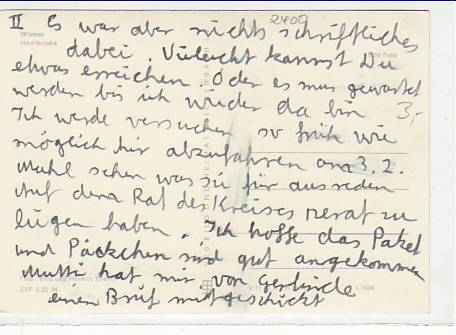 2400
II Es war aber nichts schriftliches
Wismar
Hochbrücke
dabei. Vieleicht kannst Du
Echt Foto
etwas erreichen. Oder es mus gewartet
werden bis ich wieder da bin
3,-
Ich werde versuchen so früh wie
möglich hir abzufahren am 3. 2.
Mahl sehen was sie für ausreden
Auf dem Rat des Kreises zu
lügen haben. Ich hoffe das Paket
und Päckchen sind gut angekommen
Mutti hat mir von Gerlinde
EVP 0,25 M
einen Brief mitgeschickt